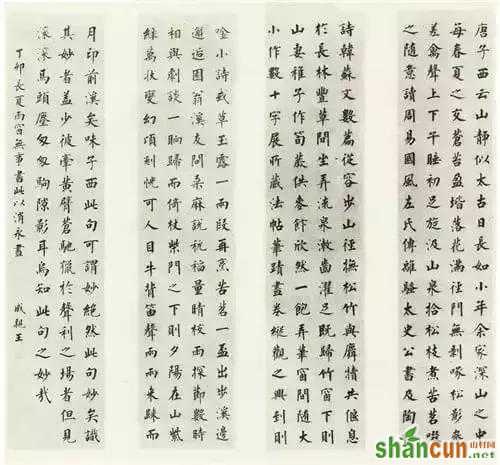 唐子西云山靜似太古日長如小年余家深山之中
每春夏之交蒼苔盈堦落花滿徑門無剝啄松影參
差禽聲上下午睡初足旋汲山泉拾松枝煮苦茗啜
之隨意讀周易國風左氏傳離騷太史公書及陶
詩韓蘇文數篇從容步山徑撫松竹與麛犢共偃息
於長林豐草間坐弄流泉漱齒濯足既歸竹窗下則
山妻稚子作筍蕨供麥飯欣然一飽弄筆窗間隨大
小作數十字展所藏法帖筆蹟畫卷縱觀之興到則
唫小詩或草玉露一兩段再烹苦茗一盃出步溪邊
邂逅園翁溪友問桑麻說秔稻量晴校雨探節數時
相與劇談一晌歸而倚杖柴門之下則夕陽在山紫
綠萬狀變幻頃刻恍可人目牛背笛聲兩兩來歸而
月印前溪矣味子西此句可謂妙絕然此句妙矣識
其妙者蓋少彼牽黃臂蒼馳獵於聲利之場者但見
滾滾馬頭塵匆匆駒隙影耳烏知此句之妙哉
丁卯長夏雨窗無事書此以消永晝
成親王
shancun
山村网
.net